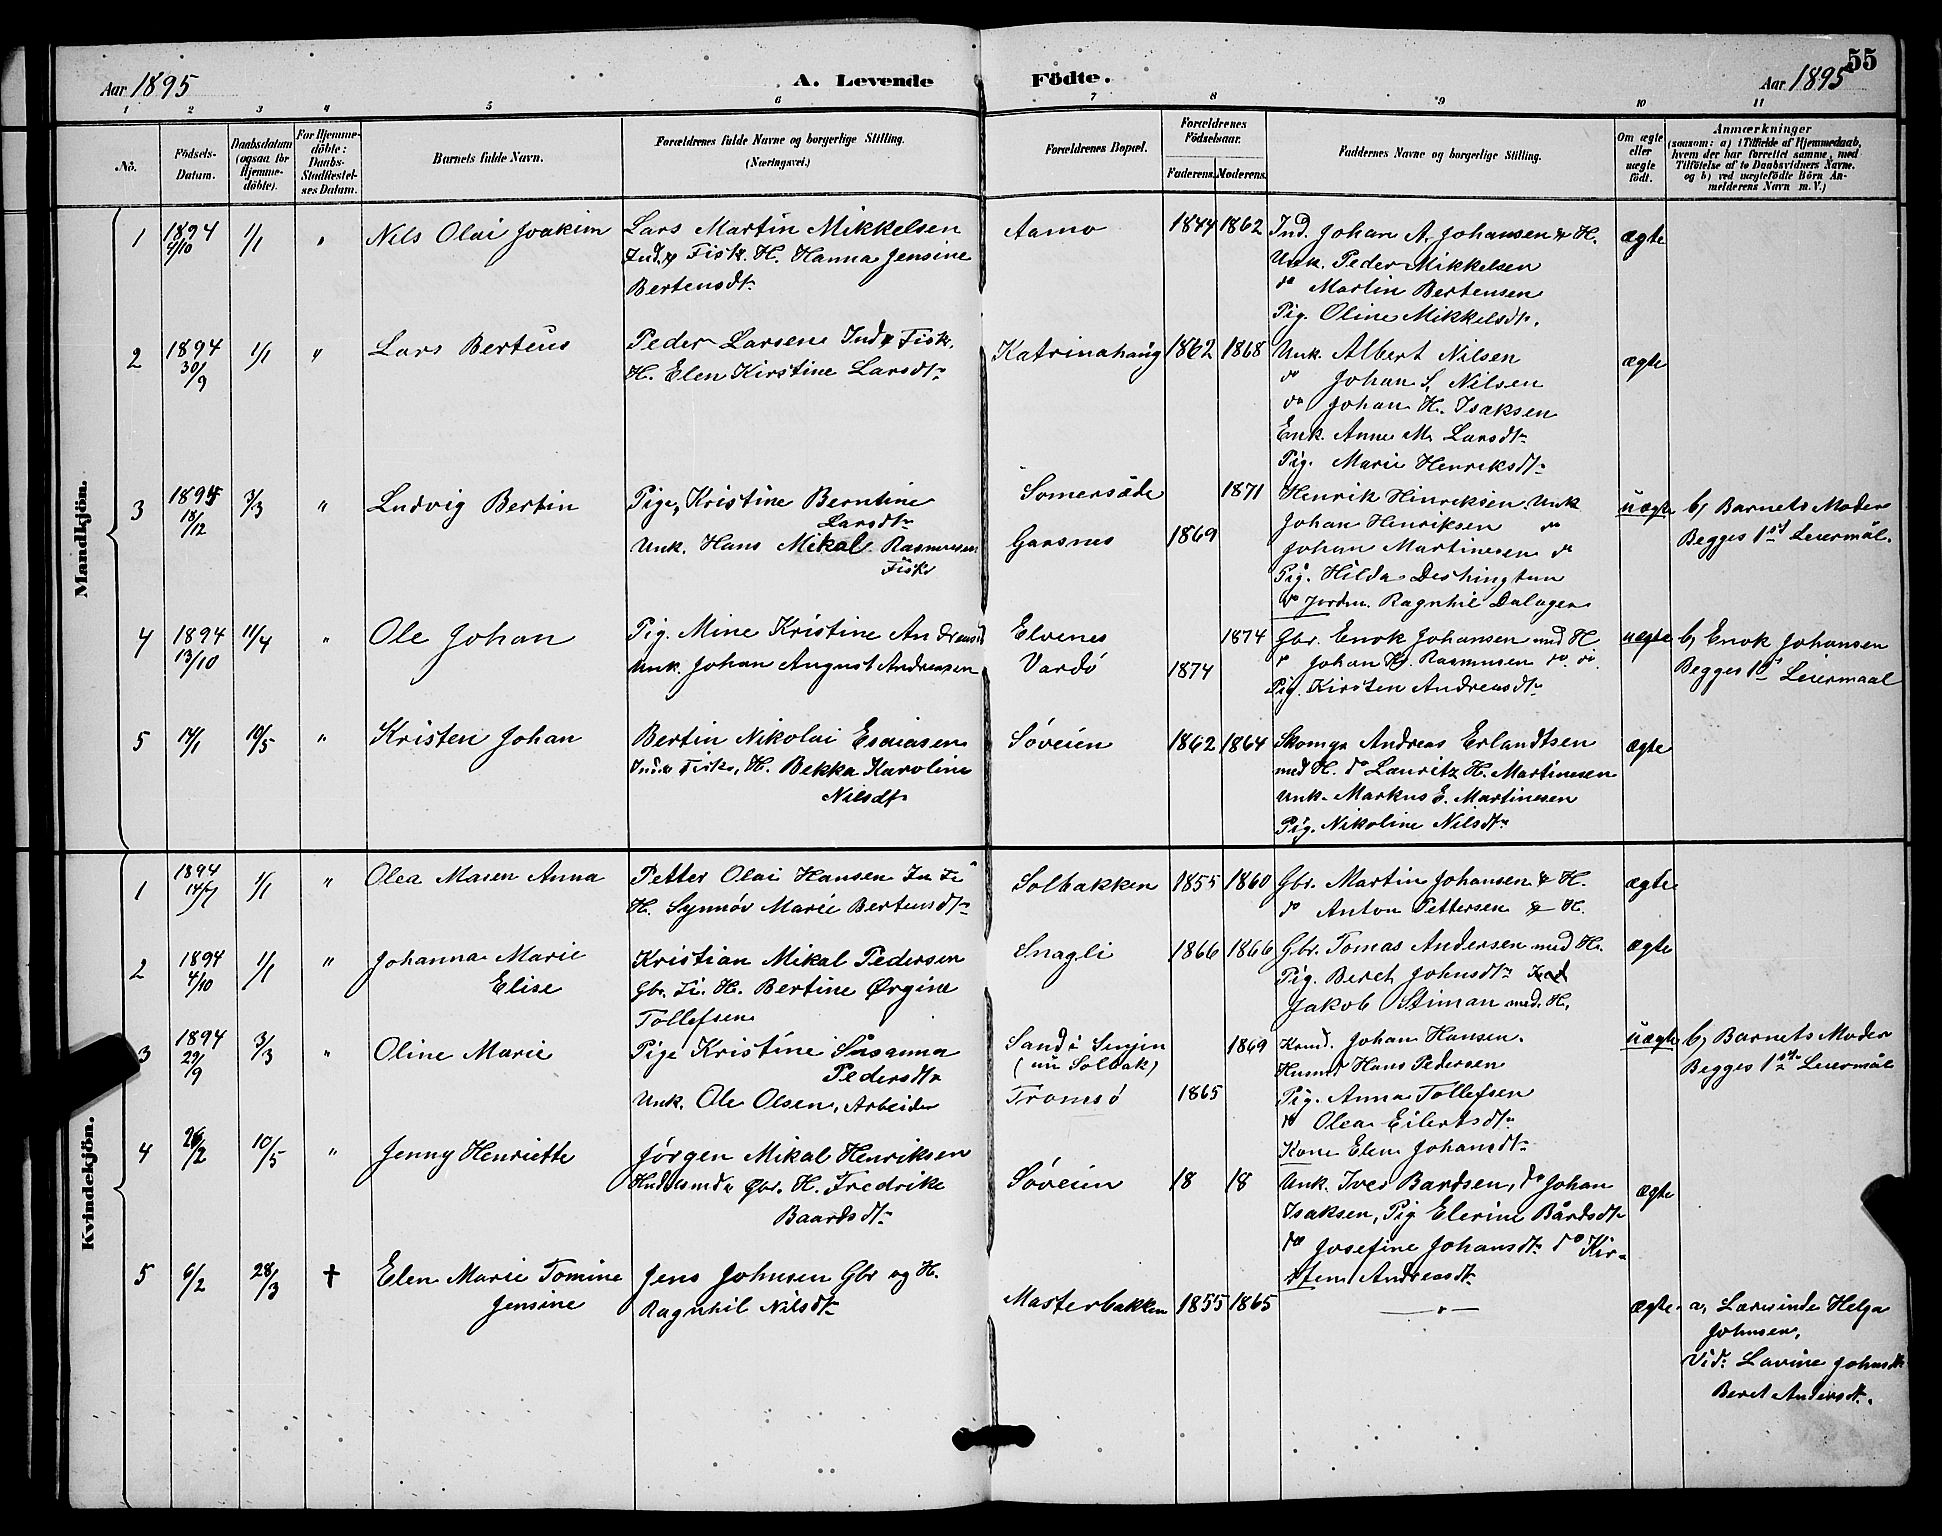 55
Aar 1895 A. Levende Födte. Aar 1895
1 2 3 4 5 6 7 8 9 10 11
No. Födsels-Datum. Daabsdatum (ogsaa for Hjemme-döbte). For Hjemme-döbte: Daabs-Stadfæstel-ses Datum. Barnets fulde Navn. Forældrenes fulde Navne og borgerlige Stilling. (Næringsvei.) Forældrenes Bopæl. Forældrenes Födselsaar. Faderens. Moderens. Faddernes Navne og borgerlige Stilling. Om ægte eller uægte födt. Anmærkninger (saasom: a) i Tilfælde af Hjemmedaab, hvem der har forrettet samme, med Tilföielse af to Daabsvidners Navne. og b) ved uægtefödte Börn An-melderens Navn m. V.)
Mandkjön.
1 1894 4/10 1/1 " Nils Olai Joakim Lars Martin Mikkelsen Aamo 1844 1862 Ind. Johan A. Johansen & H. ægte
Ind. & Fisk. H. Hanna Jensine Unk. Peder Mikkelsen
Bertensdt. do Martin Bertensen
Pig. Oline Mikkelsdt.
2 1894 30/9 1/1 " Lars Berteus Peder Larsen Ind & Fisk. Katrinahaug 1862 1868 Unk. Albert Nilsen ægte
H. Elen Kirstine Larsdt. do Johan S. Nilsen
do Johan H. Isaksen
Enk. Anne M. Larsdt.
Pig. Marie Henriksdt.
3 1894 18/12 3/3 " Ludvig Bertin Pige, Kristine Berntine Somersæde 1871 Henrik Hinriksen Unk uægte b, Barnets Moder
Larsdt. Johan Henriksen do
Unk. Hans Mikal Rasmussen Gaasnes 1869 Johan Martinesen do Begges 1st Leiermål.
Fisk. Pig. Hilda Deshingtun
do Jordm. Ragnhil Dalager
4 1894 13/10 11/4 " Ole Johan Pig. Mine Kristine Andreasd Elvenes 1874 Gbr. Enok Johansen med H uægte b, Enok Johansen
Unk. Johan August Andreasen Vardö 1874 do Johan Kr. Rasmusen do. do. Begges 1st Leiermaal
Pig. Kirsten Andreasdt.
5 14/1 10/5 " Kristen Johan Bertin Nikolai Esaiasen Söveien 1862 1864 Skomgr Andreas Erlandtsen ægte
Ind & Fisk. H. Bekka Karoline med H. do Lauritz H. Martinesen
Nilsdt. Unk. Markus E. Martinesen
Pig. Nikoline Nilsdt.
Kvindekjön.
1 1894 14/7 1/1 " Olea Maren Anna Petter Olai Hansen In Fi Solbakken 1855 1860 Gbr. Martin Johansen & H. ægte
H. Synnöv Marie Bertensdt. do Anton Pettersen & H.
2 1894 4/10 1/1 " Johanna Marie Kristian Mikal Pedersen Snagli 1866 1866 Gbr. Tomas Andersen med H. ægte
Elise Gbr. Fi. H. Bertine Ørgine Pig. Beret Johnsdt. Ind
Tollefsen Jakob Stiman med H.
3 1894 29/9 3/3 " Oline Marie Pige Kristine Susanna Sandö Senjen 1869 Johan Hansen. uægte b, Barnets Moder
Pedersdt. (nu Solbak) Husmd Hans Pedersen Begges 1ste Leiermål
Unk. Ole Olsen, Arbeider Tromsö 1865 Pig. Anna Tollefsen
do Olea Eilertsdt.
Kone Elen Johansdt.
4 26/2 10/5 " Jenny Henriette Jörgen Mikal Henriksen Söveien 18 18 Unk. Iver Bardsen, do Johan ægte
Gbr. H. Fredrike Isaksen, Pig Elerine Bårdsdt
Baardsdt. do Josefine Johansdt. do Kir-
sten Andreasdt.
5 6/2 28/3 † Elen Marie Tomine Jens Johnsen Gbr og H. Masterbakken 1855 1865 — " — ægte a, Lærerinde Helga
Jensine Ragnhil Nilsdt. Johnsen,
Vid: Lavine Johnsdt.
Beret Andersdt.